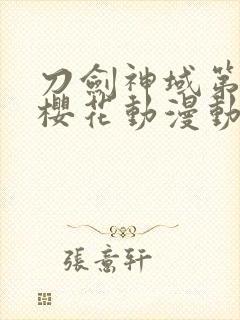 刀劍神域第
櫻花動漫動
張意軒